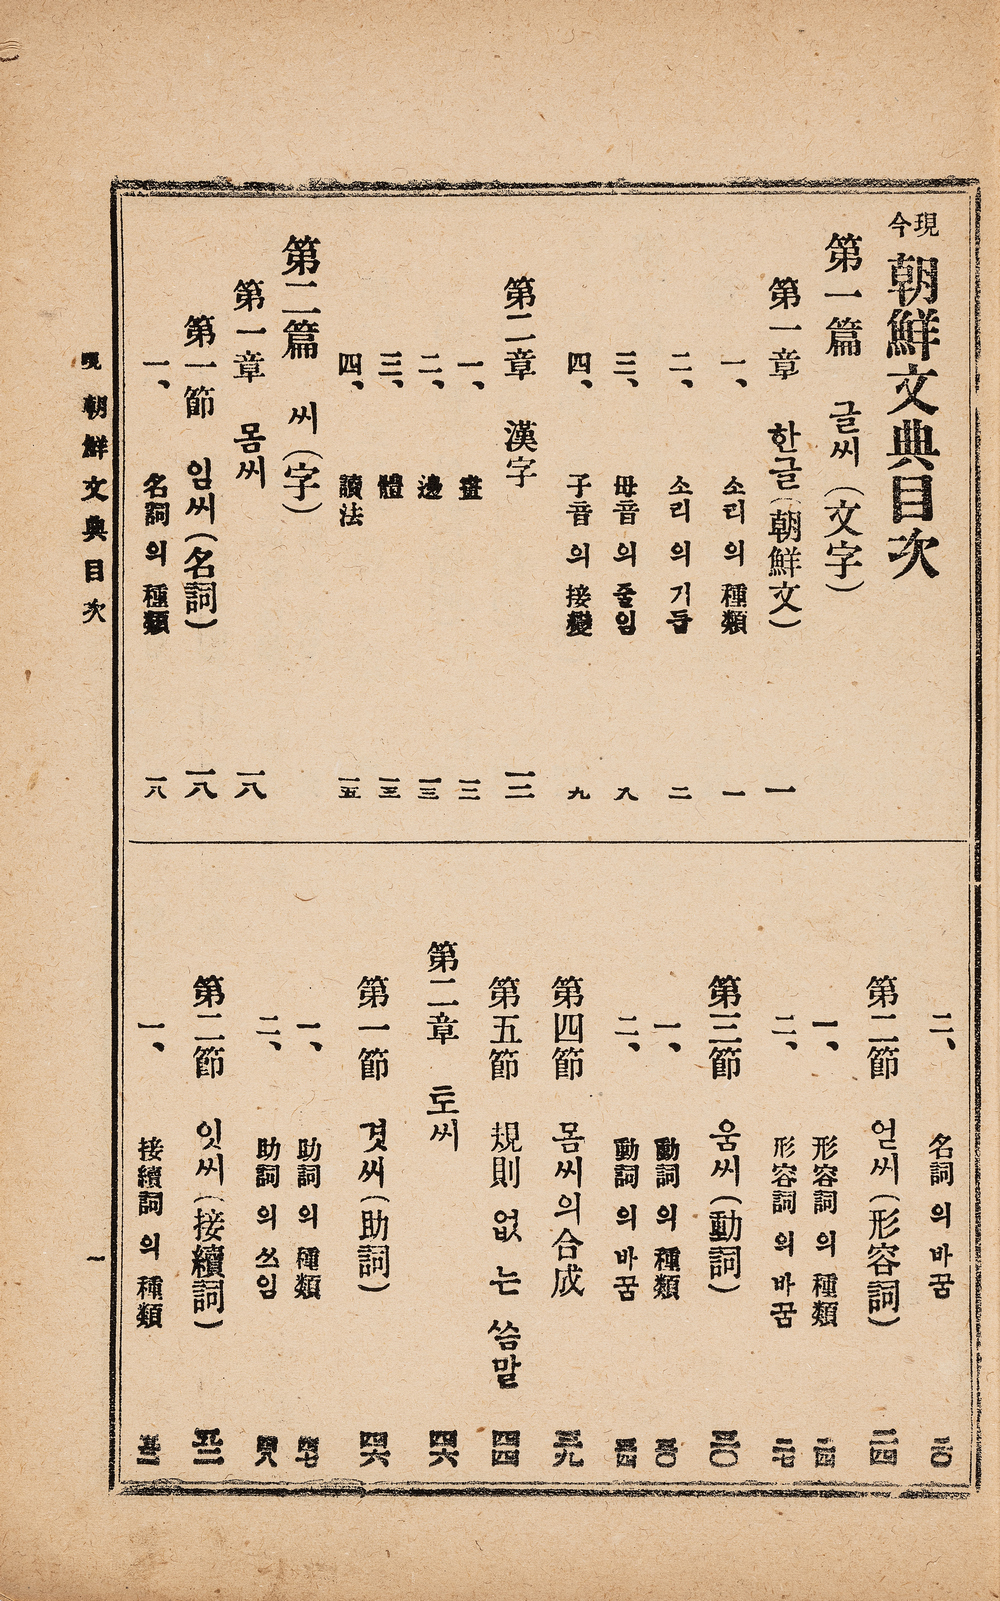 現今 朝鮮文典目次
第一篇 글씨(文字)
第一章 한글(朝鮮文) 一
一、 소리 의 種類 一
二、 소리 의 기둥 二
三、 母音 의 줄임 八
四、 子音 의 接變 九
第二章 漢字 一二
一、 畫 一二
二、 邊 一三
三、 體 一三
四、 讀法 一五
第二篇 씨(字)
第一章 몸씨 一八
第一節 임씨(名詞) 一八
一、 名詞 의 種類 一八
二、 名詞 의 바꿈 二〇
第二節 얻씨(形容詞) 二四
一、 形容詞 의 種類 二四
二、 形容詞 의 바꿈 二七
第三節 움씨(動詞) 三〇
一、 動詞 의 種類 三〇
二、 動詞 의 바꿈 三四
第四節 몸씨의合成 三九
第五節 規則 없 는 씀말 四四
第二章 토씨 四六
第一節 겻씨(助詞) 四六
一、 助詞 의 種類 四七
二、 助詞 의 쓰임 四八
第二節 잇씨(接續詞) 五三
一、 接續詞 의 種類
朝鮮文典目次
一